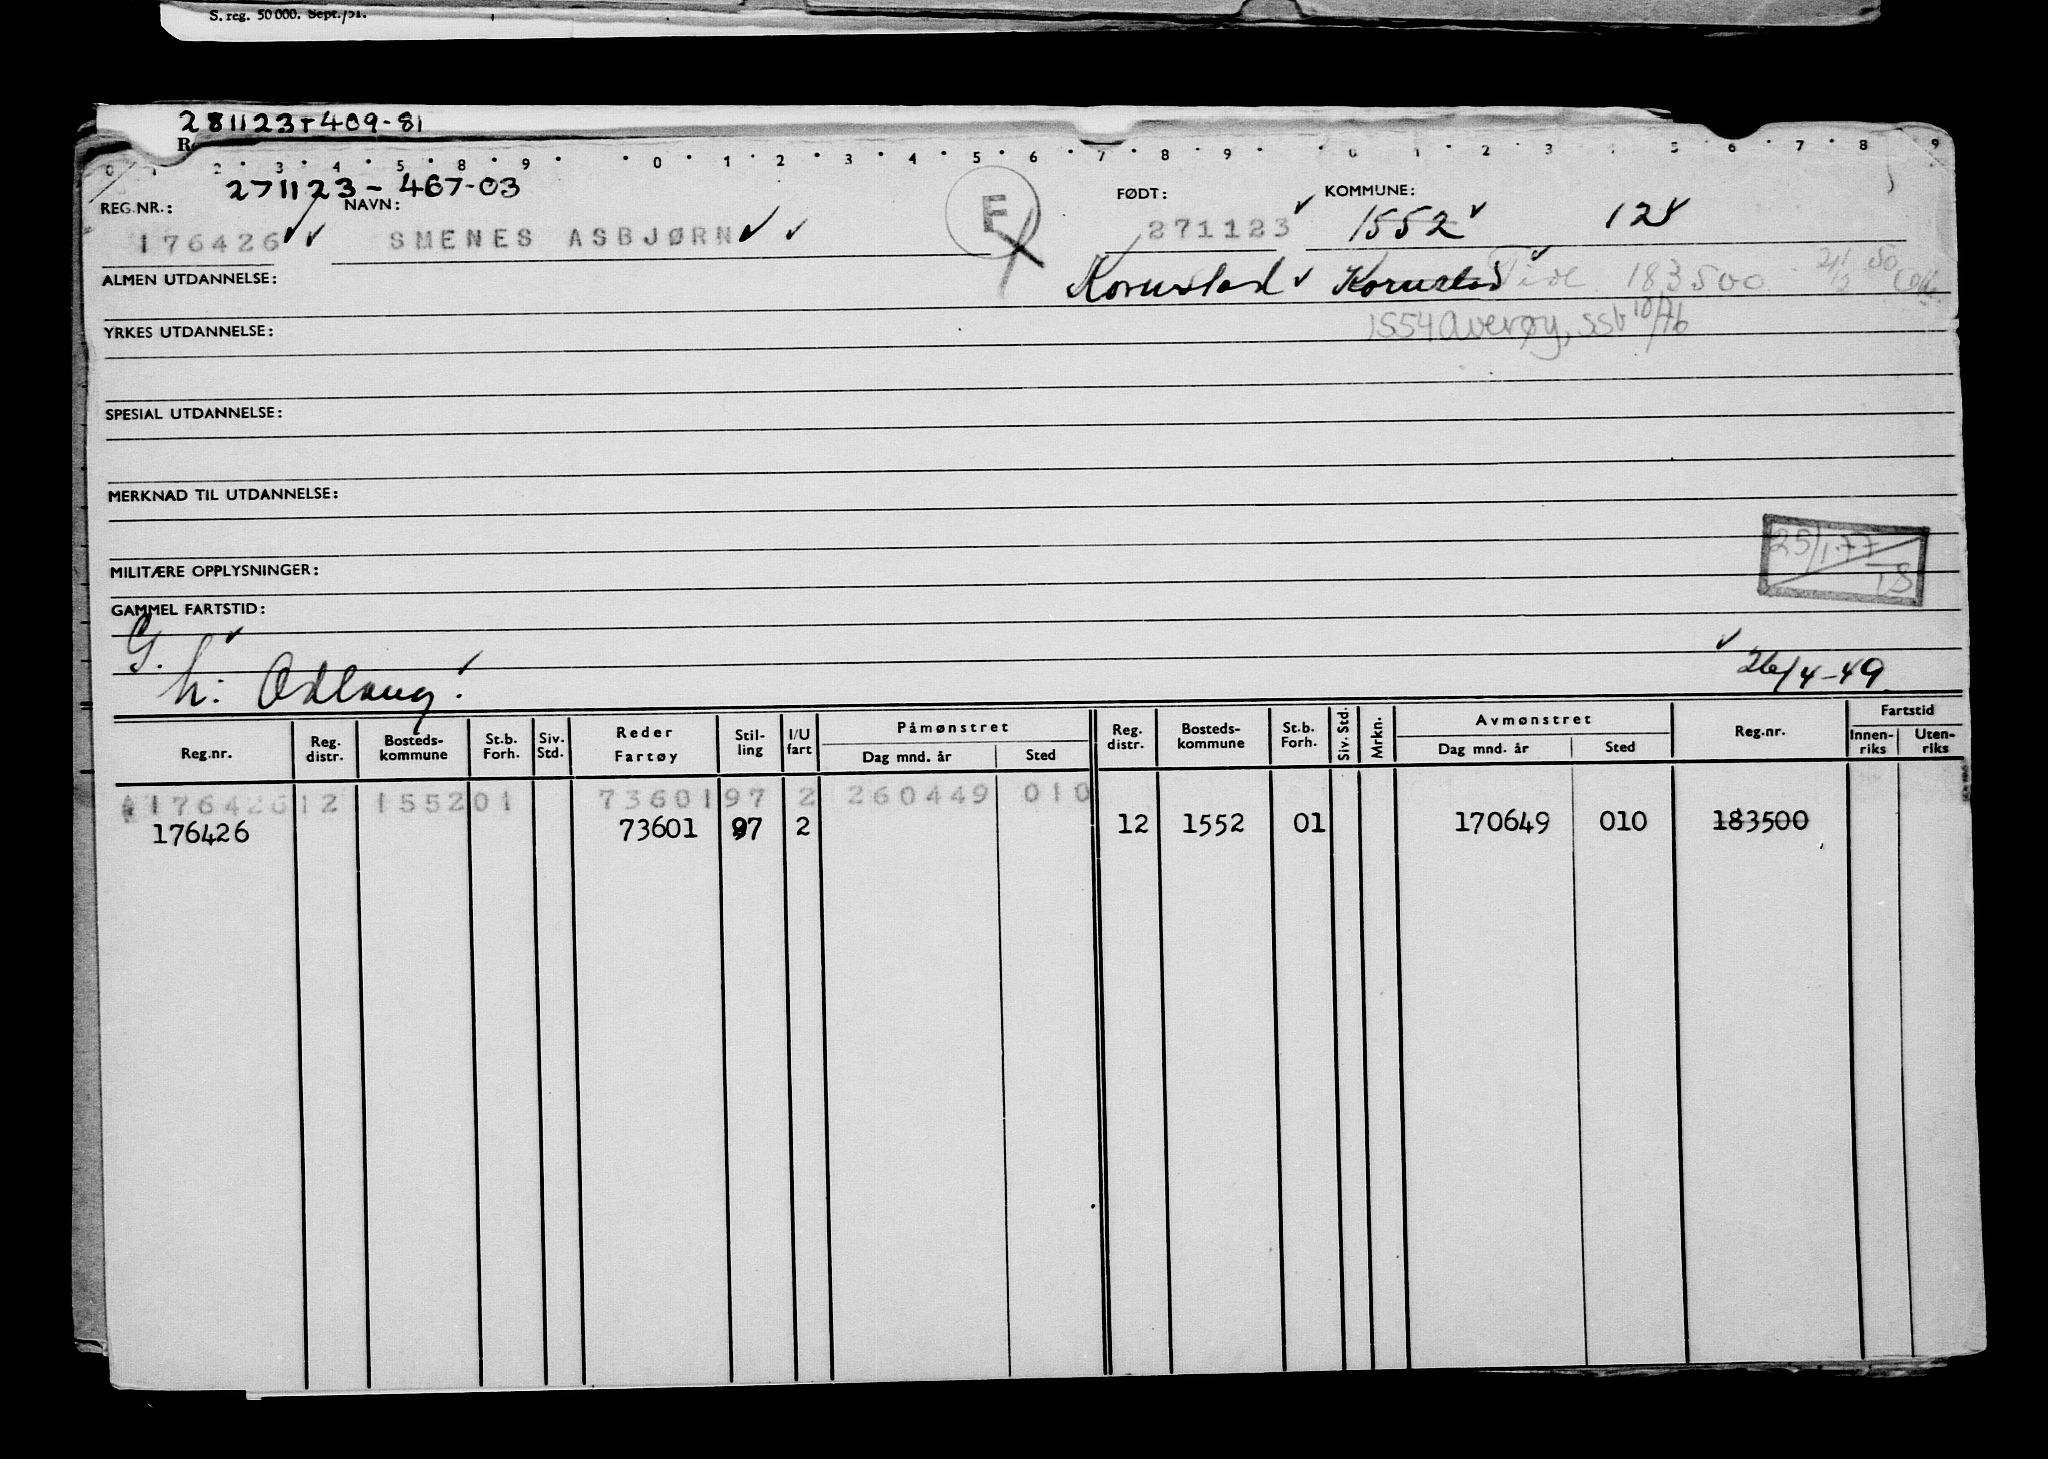 S. reg. 50 000. Sept./51.
281123+409-81
R
0 1 2 3 4 5 6 8 9 0 1 2 3 4 5 6 7 8 9 0 1 2 3 4 5 6 7 8 9
271123-467-03
REG.NR.: NAVN: E FØDT: KOMMUNE:
176426 SMENES ASBJØRN 271123 1552 124
ALMEN UTDANNELSE: Kornstad Kornstad 183500
YRKES UTDANNELSE: 1554 Averøy, ssb 10/76
SPESIAL UTDANNELSE:
MERKNAD TIL UTDANNELSE:
25/1-77
TS
MILITÆRE OPPLYSNINGER:
GAMMEL FARTSTID:
G.
h: Odlaug! 26/4-49
Reg.nr. Reg. distr. Bosteds-kommune St.b. Forh. Siv. Std. Reder Fartøy Stil-ling I/U fart Påmønstret Dag mnd. år Sted Reg. distr. Bosteds-kommune St.b. Forh. Siv. Std. Mrkn. Avmønstret Dag mnd. år Sted Reg.nr. Fartstid Innen-riks Uten-riks
176426 12 1552 01 73601 97 2 260449 010
176426 73601 97 2 12 1552 01 170649 010 183500